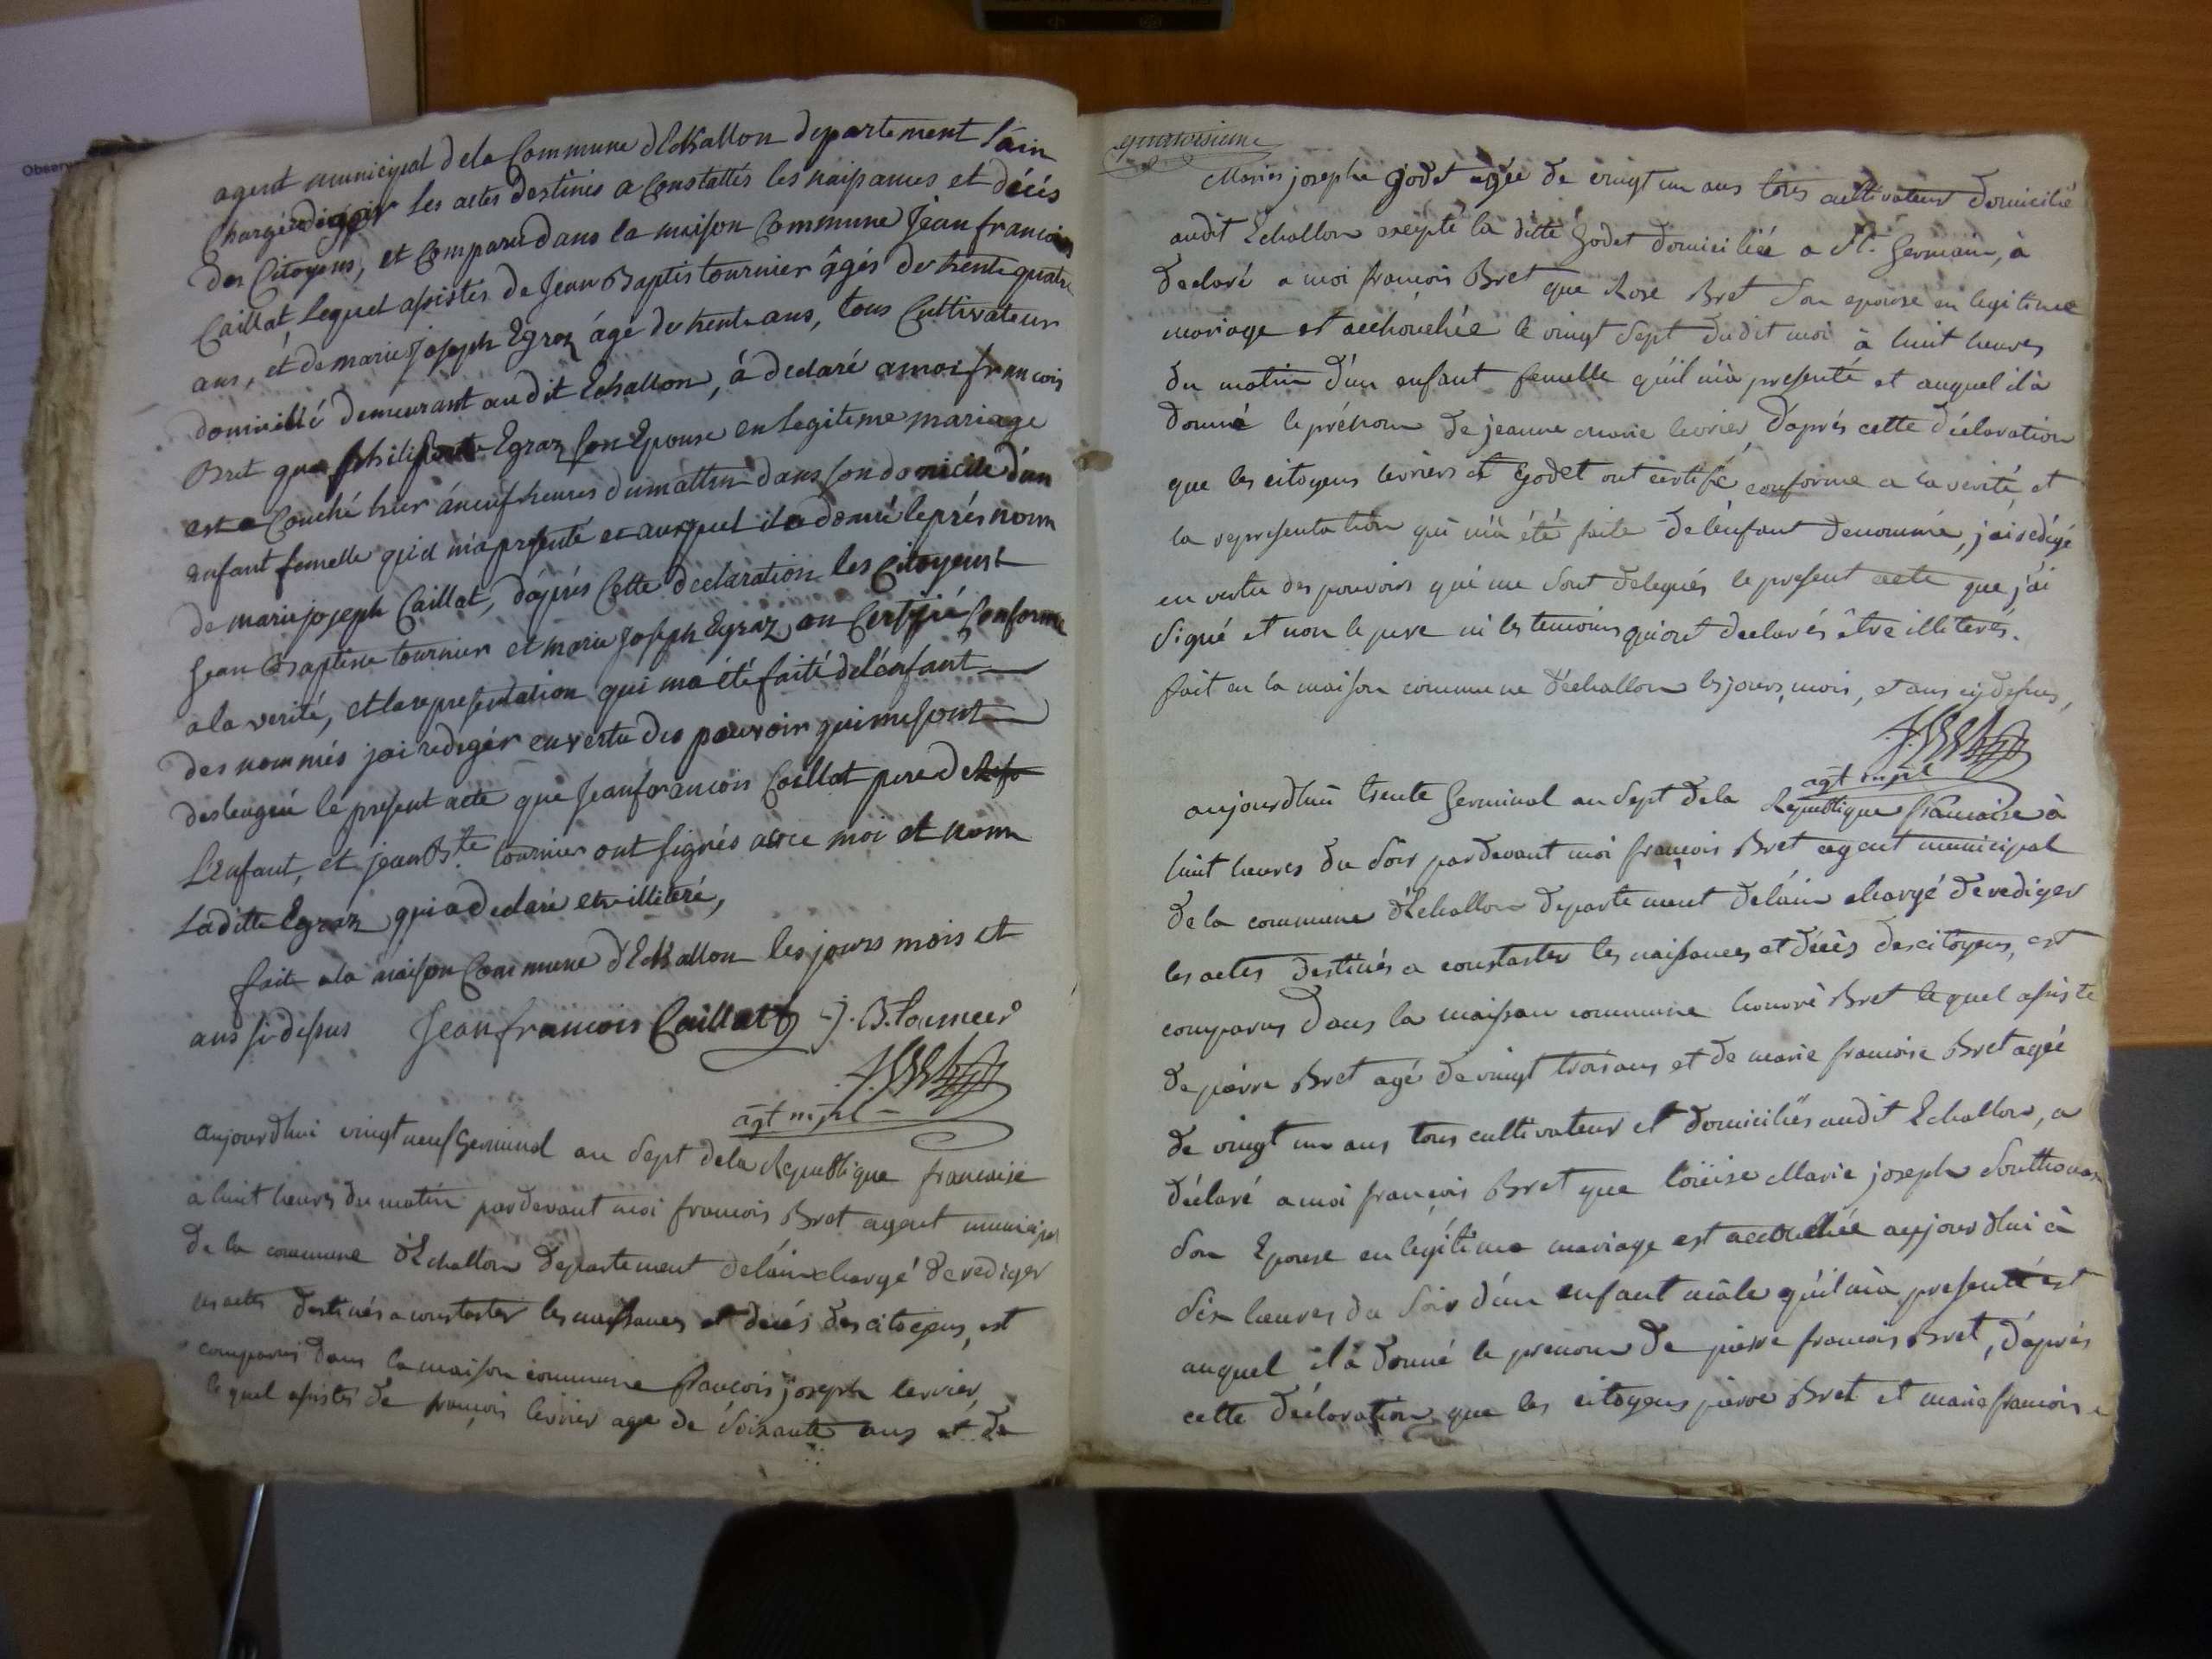 agent municipal dela Commune d'Echallon departement L'ain
Chargé rediger les actes destinés a Constattés les naissances et décés
des Citoyens, et Comparu dans la maison Commune Jean francois
Caillat lequel assistés de Jean Baptis tournier âgés de trente quatre
ans, et de marie Joseph Egraz âgé de trente ans, tous Cultivateur
domicillié demeurant audit Echallon, à declaré a moi francois
Bret que philiberte Egraz son Epouse en legitime mariage
est a Couché hier à neuf heures du mattin dans son domicile d'un
enfant femelle quil m'a presenté et auxquel il a donné le présnom
de marie joseph Caillat, d'après Cette declaration les Citoyens
Jean Baptiste tournier et marie Joseph Egraz on Certifié Conforme
a la verité, et la representation qui ma été faité de l'énfant
des nommés jai redigér en vertu des pouvoir qui me sont
deslengué le present acte que Jean francois Caillat pere de
L'Enfant, et jean Bte tournier ont signés avec moi et nomn
Laditte Egraz qui a declaré etre illiteré,
fait a la maison Commune d'Echallon les jours mois et
ans si dessus Jean francois Caillat J. B. Tournier
agt mpl
aujourdhui vingt neuf Germinal an Sept dela Republique francaise
à huit heures du matin pardevant moi francois Bret agent municipal
de la commune d'Echallon departement de láin chargé de rediger
les actes destinés a constater les naissances et décés des citoyens, est
comparus dans la maison commune françois joseph levrier,
lequel assistés de françois levrier age de Soixante ans et de
quatorsieme
Maries josephe godet agée de vingt un ans tous cultivateur domicilié
audit Echallon excepté la ditte Godet domiciliée a St. Germain, à
declaré a moi francois Bret que Rose Bret Son epouse en legitime
mariage est acchouchée le vingt Sept dudit moi à huit heures
du matin d'un enfant femelle qu'il m'à presenté et auquel il à
donné le prénom de jeanne marie levrier, d'aprés cette déclaration
que les citoyens levriers et Godet ont certifié conforme a la verité et
la representation qui m'à été faite de l'enfant denommé, j'ai rédigé
en vertu des pouvoirs qui me sont delegués le present acte que j'ai
Signé et non le pere ni les temoins qui ont declarés être illiterés.
fait en la maison commune d'échallon les jours, mois, et ans cÿ dessus,
agt mpl
aujourdhui trente Germinal an Sept de la Republique francaise à
huit heures du Soir pardevant moi françois Bret agent municipal
de la commune d'Echallon departement de láin chargé de rediger
les actes destinés a constaster les naissances et décès des citoyens, est
comparus dans la maison commune honoré Bret lequel assisté
de pierre Bret agé de vingt trois ans et de marie francoise Bret agée
de vingt un ans tous cultivateur et domiciliés audit Echallon, a
déclaré a moi françois Bret que loüise Marie joseph
Son Epouse en légitime mariage est accouchée aujourdhui à
Six heures du Soir d'un enfant mâle qu'il m'à presenté et
auquel il à donné le prenom de pierre francois Bret, d'aprés
cette déclaration que les citoyens pierre Bret et marie francoise